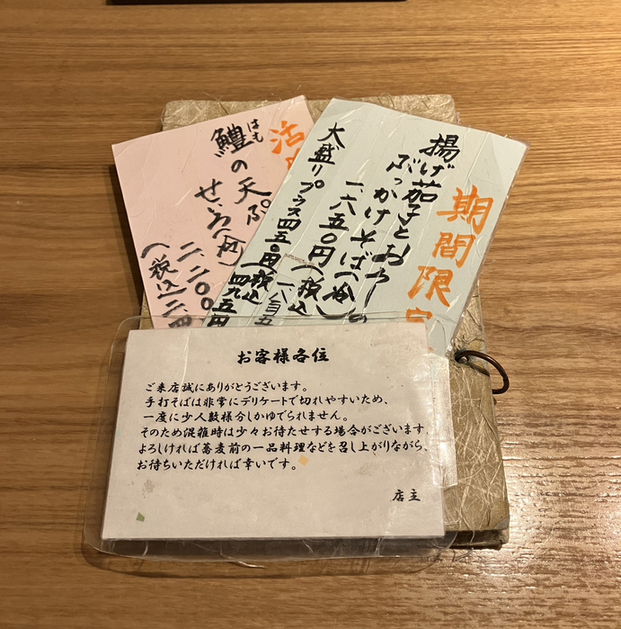 活
鱧の天ぷ
はも
せいろ(何)
二、二〇〇
(税込二、四
期間限定
揚げ茄子とおろしの
ぶっかけそば(冷)
一、六五〇円(税込
大盛りプラス四五〇円(税込
四九五円
お客様各位
ご来店誠にありがとうございます。
手打そばは非常にデリケートで切れやすいため、
一度に少人数様分しかゆでられません。
そのため混雑時は少々お待たせする場合がございます。
よろしければ蕎麦前の一品料理などを召し上がりながら、
お待ちいただければ幸いです。
店主